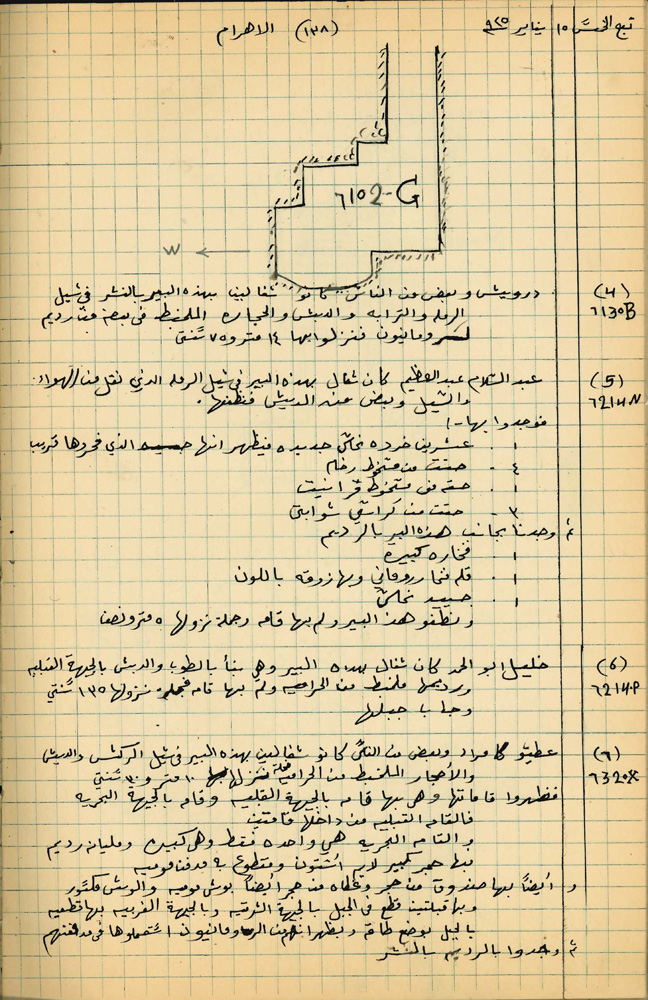 تبع الخميس ١٥ يناير ٩٢٥ (١٣٨) الاهرام
G-7102
W
(٤) درويش وبعض من الناس كانو شغالين بهذه البير بالنشر في شيل
7130B الرمله والترابه والدبش والحجاره الملخبط في بعضه من رديم
ومانيون فنزلوا بها ١٤ متر و ٧٥ سنتي
(5) عبد السلام عبد العظيم كان شغال بهذه البير في شيل الرمله الذي نقل من الهواء
7214N والشيل وبعض من الدبش فنظفها.
فوجدوا بها:-
١ . عشرين خرده نحاس جديده فيظهر انها الذي فحروها قريب
٤ - حتت من رخام
١ . حته من جرانيت
٣ - حتت من كراسي شوابتي
ثم وجدنا بجانب هذه البير بالرديم
١ فخاره كبيره
١ . قله فخار روماني وبها زوقه باللون
١ . نحاس
ونظفو هذه البير ولم بها قامه وجملة نزولها ٥ متر ونصف
(6) خليل ابو الحمد كان شغال بهذه البير وهي بنأ بالطوب والدبش بالجهة القبليه
7214P ورديمها ملخبط من الحراميه ولم بها قامه فجملة نزولها ١٣٥ سنتي
وجابت جبلها
(7) عطيتو مراد وبعض من الناس كانو شغالين بهذه البير في شيل الركش والدبش
7320X والأحجار الملخبط من الحراميه فجملة نزولها ١٠ متر و ٣٠ سنتي
فظهروا قاماتها وهي بها قامه بالجهة القبليه وقامه بالجهة البحريه
فالقامه القبليه من داخلها قامتين
والقامه البحريه هي واحده فقط وهي كبيره ومليانه رديم
حجر كبير ومقطوع به مدفن موميه
و ايضاً بها صندوق من حجر وغطاه من حجر ايضاً بوش موميه والوش مكسور
وبها قبلتين قطع في الجبل بالجهة الشرقيه وبالجهة الغربيه بها قطعيه
بالجبل بوضع طاقه ويظهر انهم من الرومانيون استعملوها في مدافنهم
ثم وجدوا بالرديم بالنشر